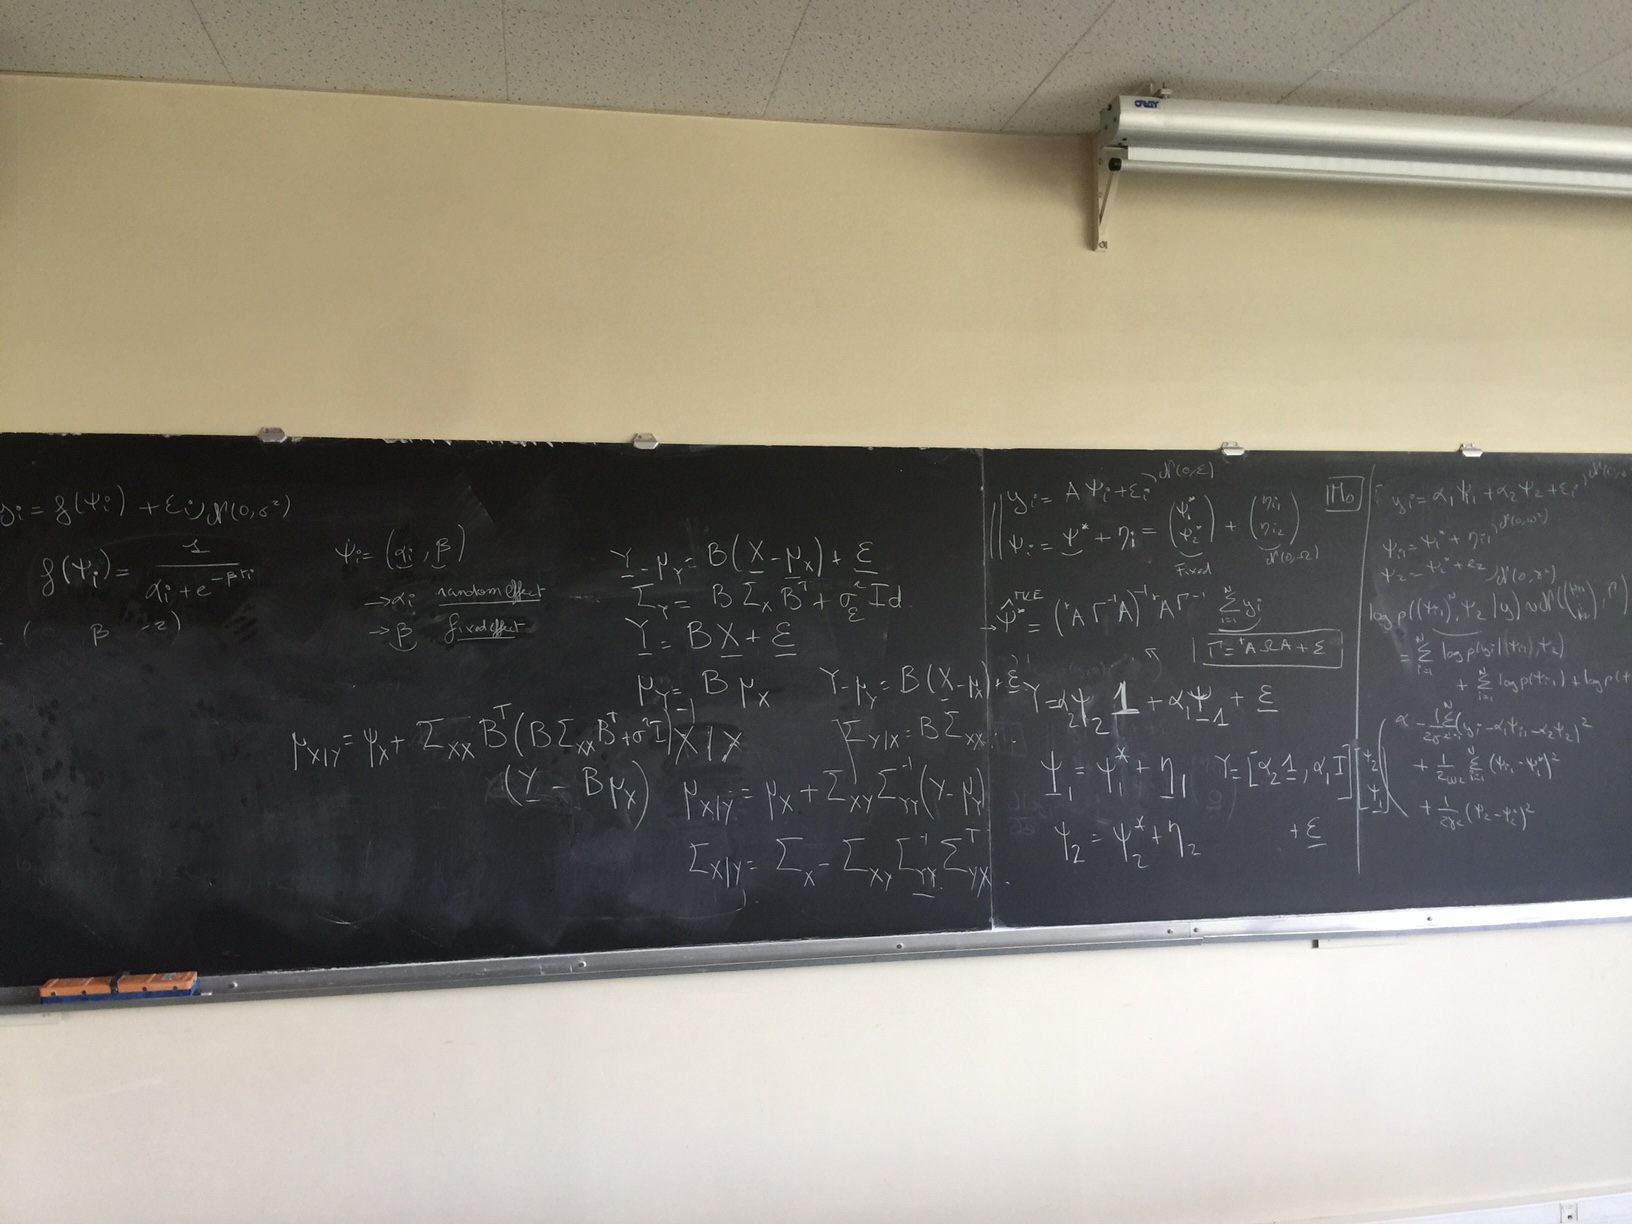 ORAY
yi = f(ψi) + εi, 𝒩(0,σ²)
f(ψi) = 1 / (αi + e^{-βti})
β
ψi = (αi, β)
→ αi random effect
→ β fixed effect
Y - μ_Y = B(X - μ_X) + ε
Σ_Y = B Σ_X B^T + σ_ε² Id
Y = B X + ε
μ_Y = B μ_X
μ_{X|Y} = ψ_X + Σ_XX B^T (B Σ_XX B^T + σ² I)
(Y - B μ_X)
X | Y
Y - μ_Y = B(X - μ_X) + ε
Σ_{Y|X} = B Σ_XX
μ_{X|Y} = μ_X + Σ_XY Σ_YY^{-1} (Y - μ_Y)
Σ_{X|Y} = Σ_X - Σ_XY Σ_YY^{-1} Σ_YX^T
yi = A ψi + εi, 𝒩(0,Σ)
ψi = ψ* + ηi = (ψ1* ψ2*) + (ηi1 ηi2)
Fixed
𝒩(0,Ω)
M0
→ ψ̂* = (ᵗA Γ⁻¹ A)⁻¹ ᵗA Γ⁻¹ Σ_{i=1}^{N} yi
Γ = ᵗA Ω A + Σ
Y = α2 ψ2 1 + α1 ψ1 + ε
ψ1 = ψ1* + η1
Y = [α2 1, α1 I] [ψ2 ψ1]
ψ2 = ψ2* + η2
+ ε
yi = α1 ψi1 + α2 ψ2 + εi
ψi1 = ψ1* + ηi1, 𝒩(0,ω²)
ψ2 = ψ2* + ε2, 𝒩(0,γ²)
log p((ψi1)^N, ψ2 | y)
= Σ_{i=1}^{N} log p(yi | ψi1, ψ2)
+ Σ_{i=1}^{N} log p(ψi1) + log p(ψ
α - 1/2σ² Σ (yi - α1ψi1 - α2ψ2)²
+ 1/2ω² Σ_{i=1}^{N} (ψi1 - ψ1*)²
+ 1/2γ² (ψ2 - ψ2*)²